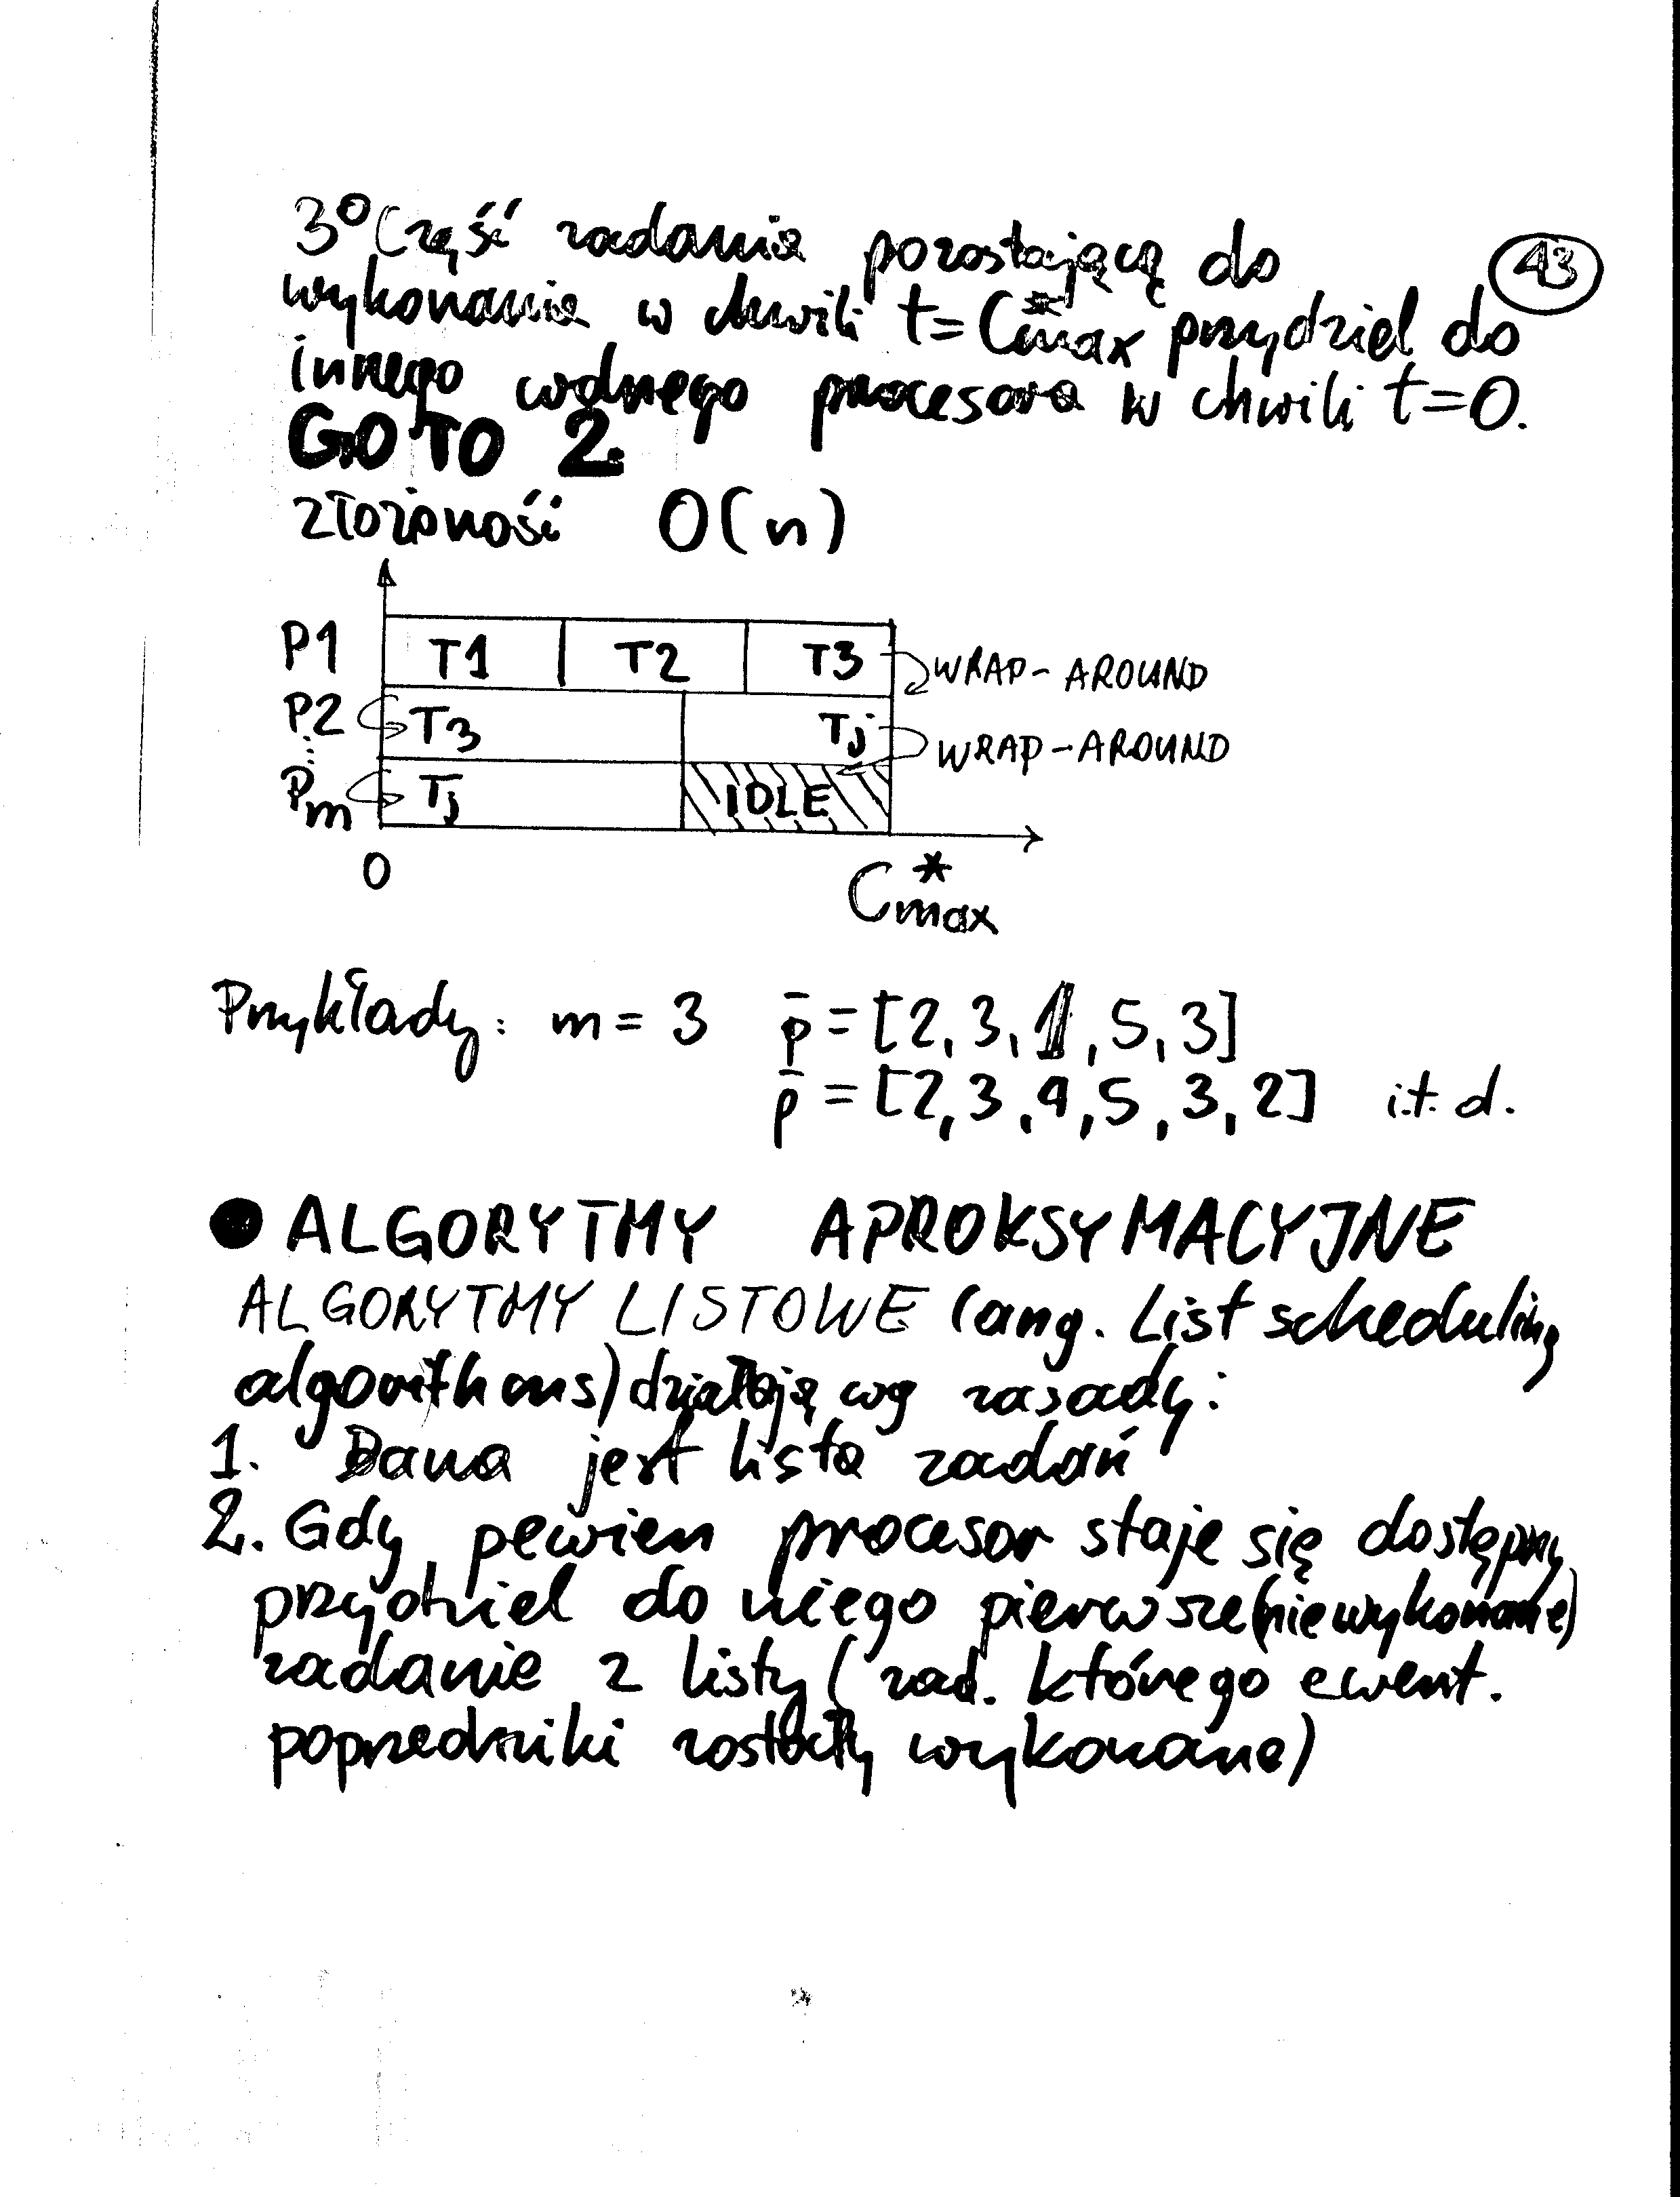 3° Część zadania pozostającą do
43
wykonania w chwili t = C*max przydziel do
innego wolnego procesora w chwili t=0.
GO TO 2.
złożoność O(n)
P1 T1 T2 T3 WRAP-AROUND
P2 T3 Tj WRAP-AROUND
⋮
Pm Tj IDLE
0 C*max
Przykłady: m = 3 p̄ = [2, 3, 1, 5, 3]
p̄ = [2, 3, 4, 5, 3, 2] i.t.d.
● ALGORYTMY APROKSYMACYJNE
ALGORYTMY LISTOWE (ang. List scheduling
algorithms) działają wg zasady:
1. Dana jest lista zadań
2. Gdy pewien procesor staje się dostępny
przydziel do niego pierwsze (niewykonane)
zadanie z listy (zad. którego ewent.
poprzedniki zostały wykonane)